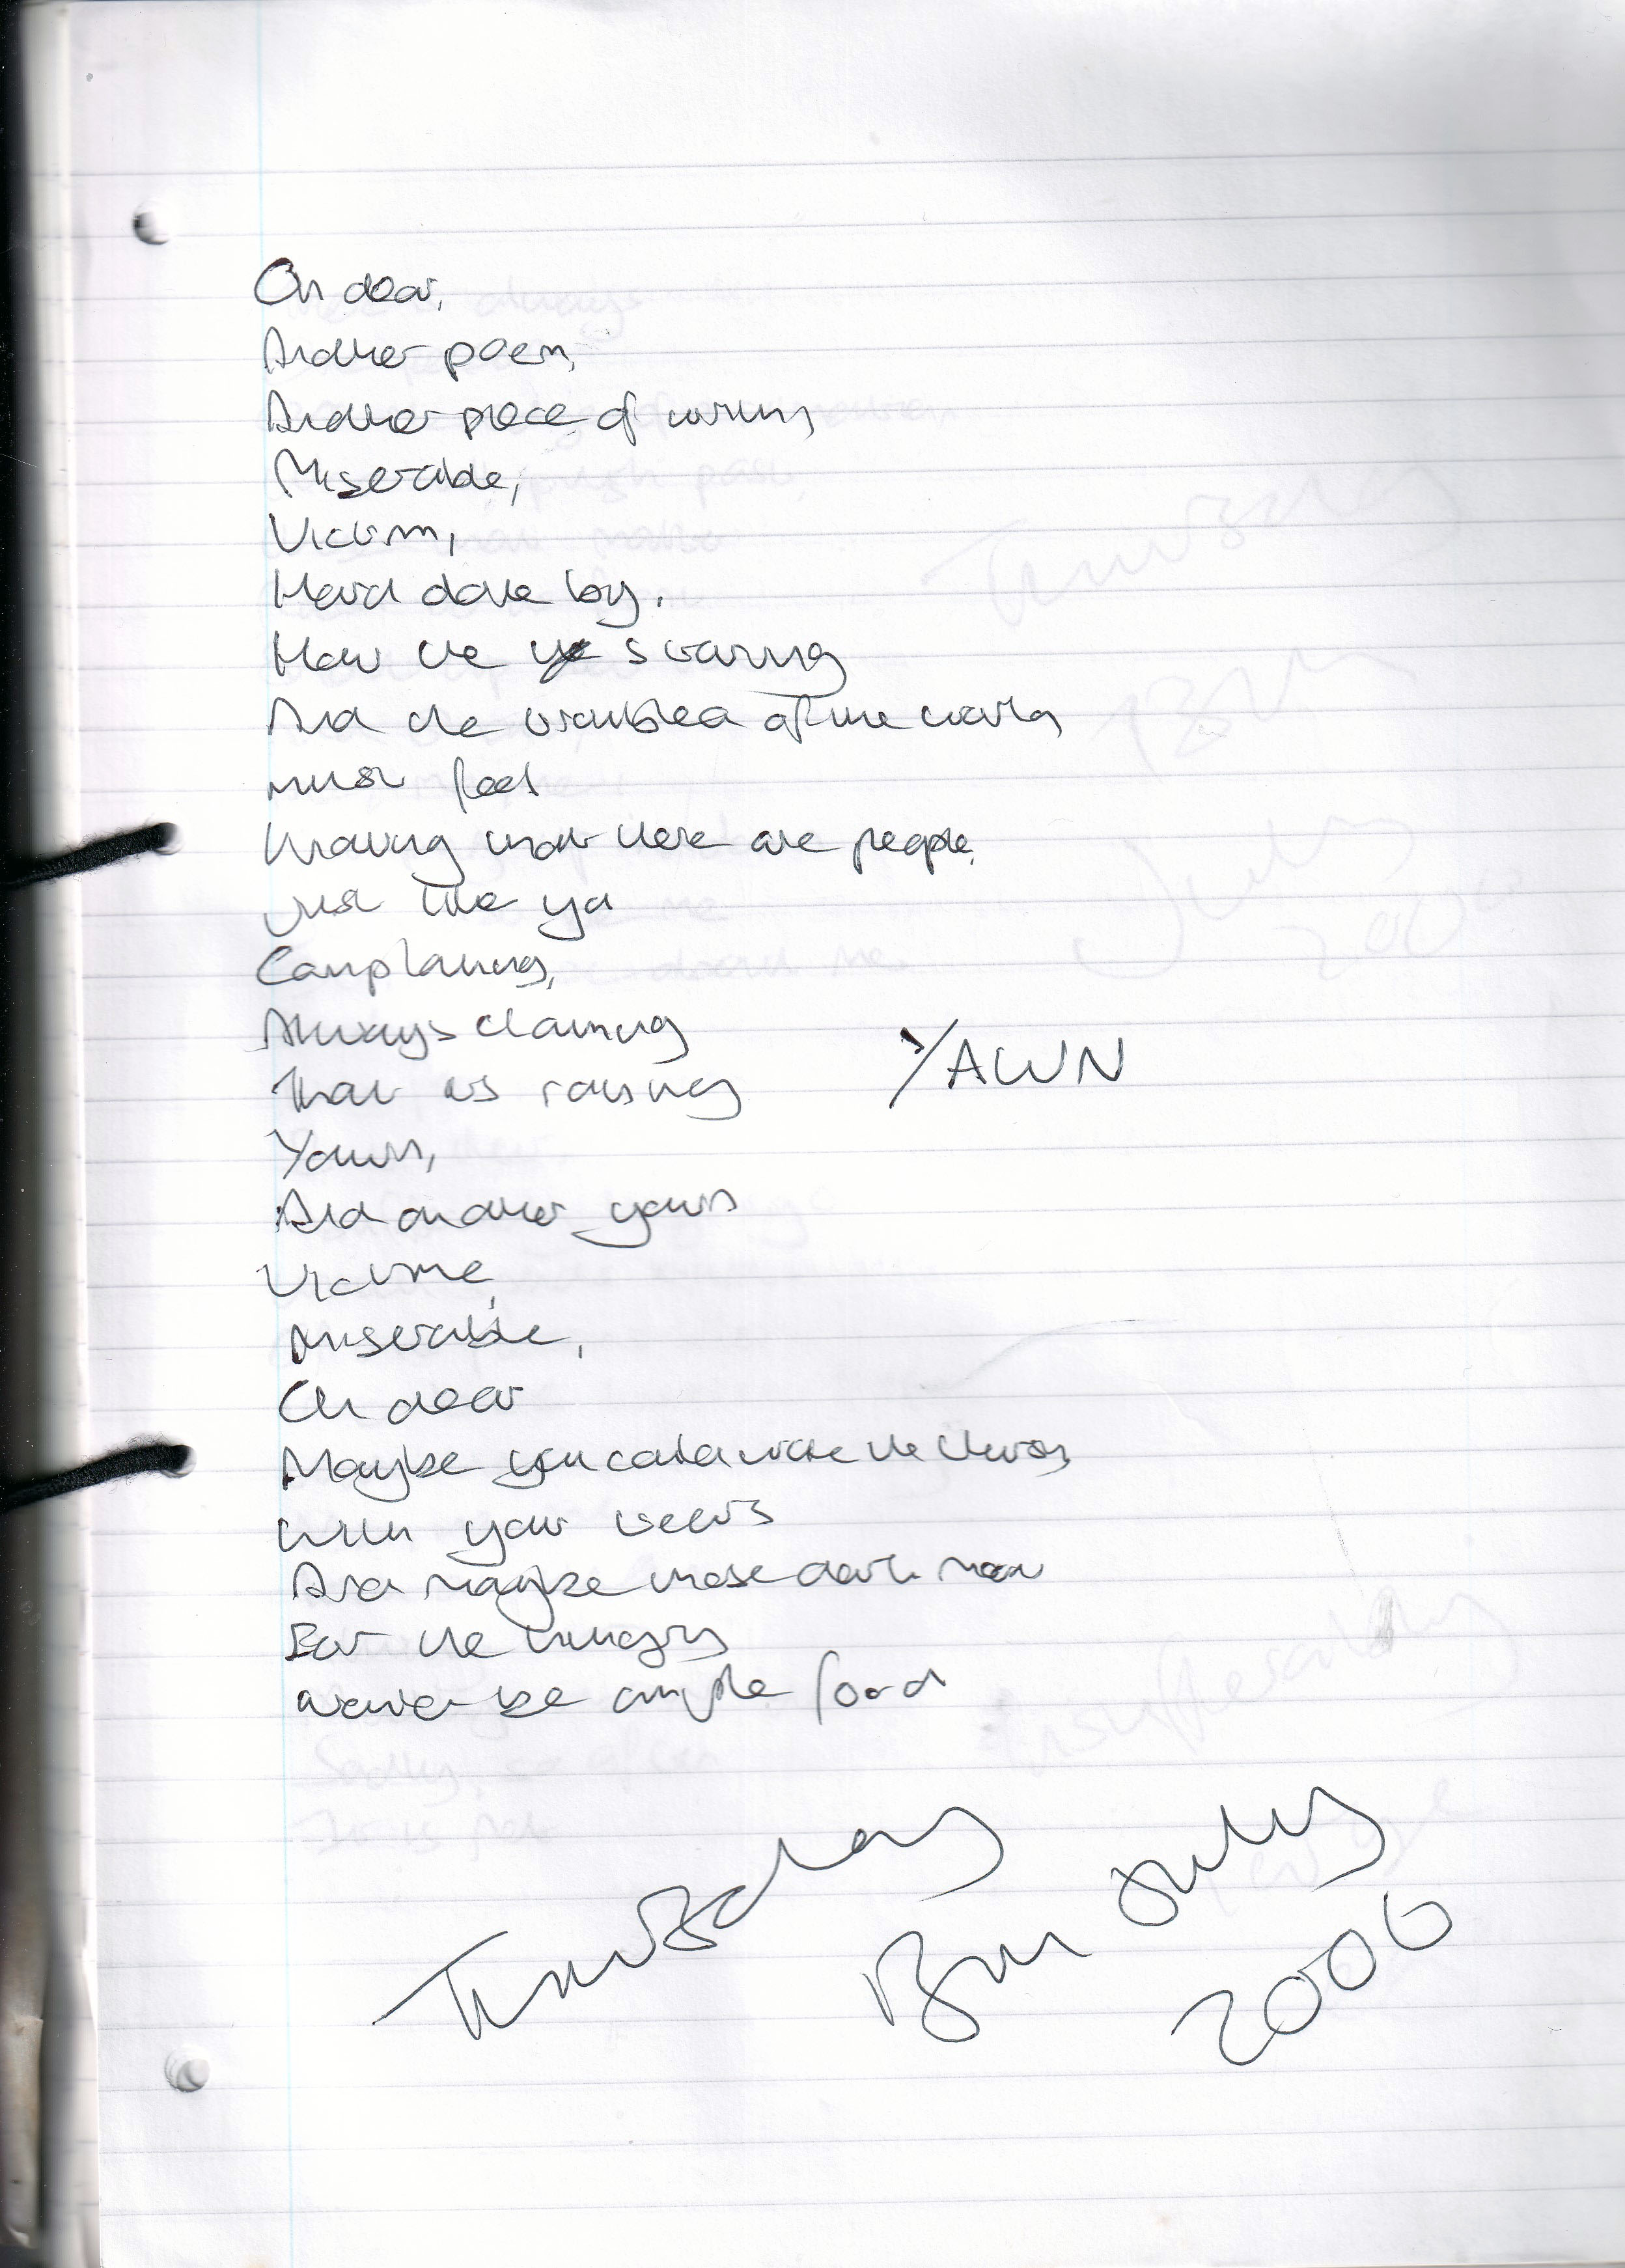 Oh dear,
Another poem,
Another piece of writing
Miserable,
Victim,
Hard done by.
How the starving
And the troubled of the world,
must feel
Knowing that there are people,
Just like you
Complaining,
Always claiming
That its raining
YAWN
Yawn,
And another yawn
Victim
Miserable,
Oh dear
Maybe you could the thirsty
With your tears
And maybe those dark
For the hungry
be ample food
Thursday
13th July
2006